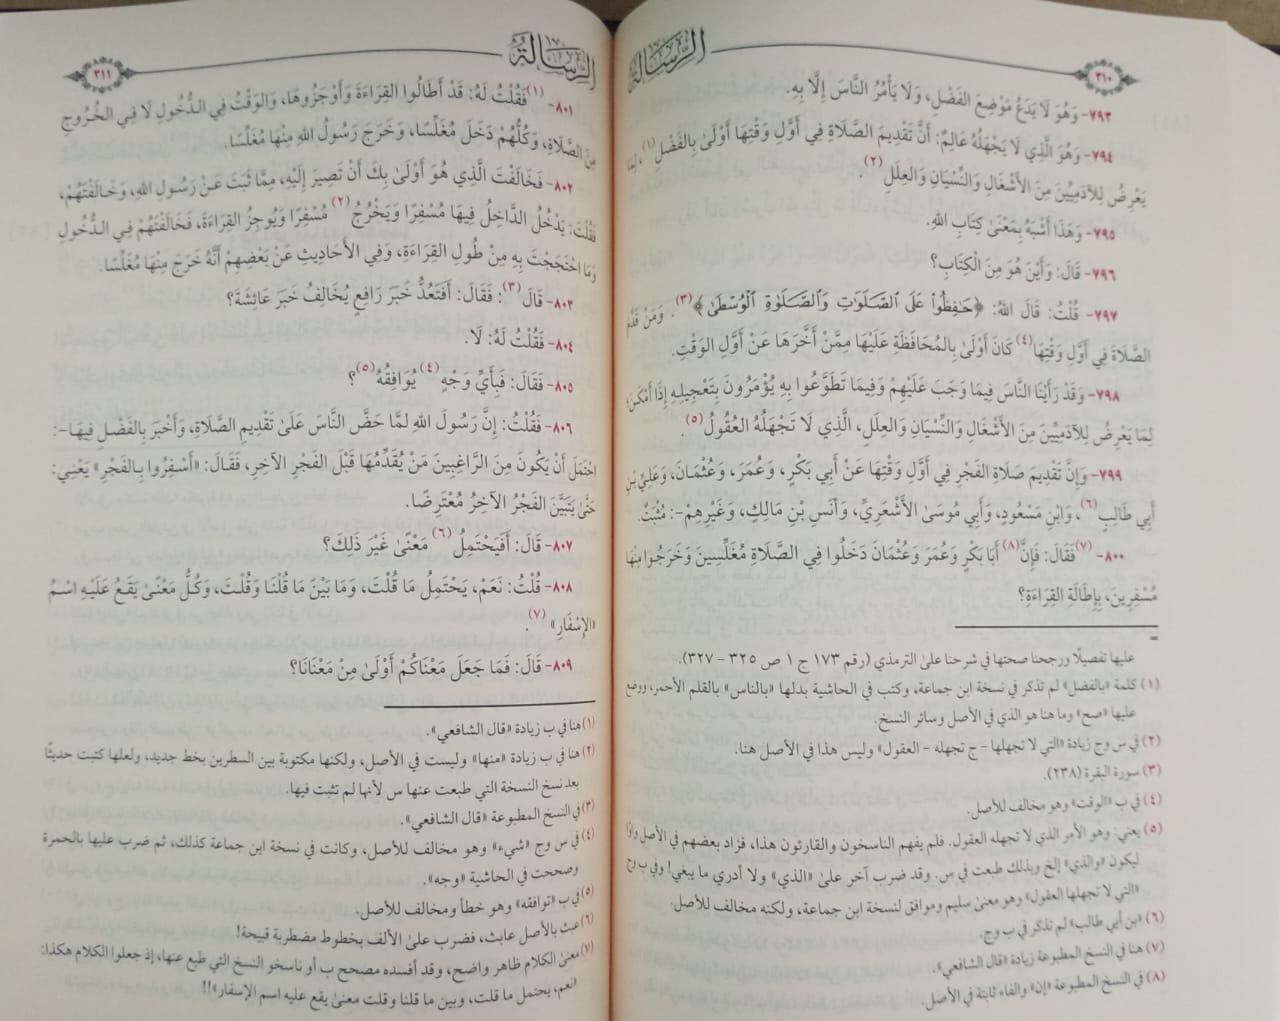 ٣١٠
الرسالة
٧٩٣- وَهُوَ لَا يَدَعُ مَوْضِعَ الفَضْلِ، وَلَا يَأْمُرُ النَّاسَ إِلَّا بِهِ.
٧٩٤- وَهُوَ الَّذِي لَا يَجْهَلُهُ عَالِمٌ: أَنَّ تَقْدِيمَ الصَّلَاةِ فِي أَوَّلِ وَقْتِهَا أَوْلَىٰ بِالفَضْلِ(١)، لِمَا
يَعْرِضُ لِلآدَمِيِّينَ مِنَ الأَشْغَالِ وَالنِّسْيَانِ وَالعِلَلِ(٢).
٧٩٥- وَهَذَا أَشْبَهُ بِمَعْنَىٰ كِتَابِ اللهِ.
٧٩٦- قَالَ: وَأَيْنَ هُوَ مِنَ الْكِتَابِ؟
٧٩٧- قُلْتُ: قَالَ اللهُ: ﴿حَٰفِظُوا۟ عَلَى ٱلصَّلَوَٰتِ وَٱلصَّلَوٰةِ ٱلْوُسْطَىٰ﴾(٣). وَمَنْ قَدَّمَ
الصَّلَاةَ فِي أَوَّلِ وَقْتِهَا(٤) كَانَ أَوْلَىٰ بِالمُحَافَظَةِ عَلَيْهَا مِمَّنْ أَخَّرَهَا عَنْ أَوَّلِ الوَقْتِ.
٧٩٨- وَقَدْ رَأَيْنَا النَّاسَ فِيمَا وَجَبَ عَلَيْهِمْ وَفِيمَا تَطَوَّعُوا بِهِ يُؤْمَرُونَ بِتَعْجِيلِهِ إِذَا أَمْكَنَ؛
لِمَا يَعْرِضُ لِلآدَمِيِّينَ مِنَ الأَشْغَالِ وَالنِّسْيَانِ وَالعِلَلِ، الَّذِي لَا تَجْهَلُهُ العُقُولُ(٥).
٧٩٩- وَإِنَّ تَقْدِيمَ صَلَاةِ الفَجْرِ فِي أَوَّلِ وَقْتِهَا عَنْ أَبِي بَكْرٍ، وَعُمَرَ، وَعُثْمَانَ، وَعَلِيِّ بْنِ
أَبِي طَالِبٍ(٦)، وَابْنِ مَسْعُودٍ، وَأَبِي مُوسَىٰ الأَشْعَرِيِّ، وَأَنَسِ بْنِ مَالِكٍ، وَغَيْرِهِمْ-: مُثْبَتٌ.
٨٠٠- (٧)فَقَالَ: فَإِنَّ(٨) أَبَا بَكْرٍ وَعُمَرَ وَعُثْمَانَ دَخَلُوا فِي الصَّلَاةِ مُغَلِّسِينَ وَخَرَجُوا مِنْهَا
مُسْفِرِينَ، بِإِطَالَةِ القِرَاءَةِ؟
=
عليها تفصيلًا ورجحنا صحتها في شرحنا علىٰ الترمذي (رقم ١٧٣ ج ١ ص ٣٢٥ - ٣٢٧).
(١) كلمة «بالفضل» لم تذكر في نسخة ابن جماعة، وكتب في الحاشية بدلها «بالناس» بالقلم الأحمر، ووضع
عليها «صح» وما هنا هو الذي في الأصل وسائر النسخ.
(٢) في س وج زيادة «التي لا تجهلها - ج تجهله - العقول» وليس هذا في الأصل هنا.
(٣) سورة البقرة (٢٣٨).
(٤) في ب «الوقت» وهو مخالف للأصل.
(٥) يعني: وهو الأمر الذي لا تجهله العقول. فلم يفهم الناسخون والقارئون هذا، فزاد بعضهم في الأصل واوًا
ليكون «والذي» إلخ وبذلك طبعت في س. وقد ضرب آخر علىٰ «الذي» ولا أدري ما يبغي! وفي ب وج
«التي لا تجهلها العقول» وهو معنى سليم وموافق لنسخة ابن جماعة، ولكنه مخالف للأصل.
(٦) «ابن أبي طالب» لم تذكر في ب وج.
(٧) هنا في النسخ المطبوعة زيادة «قال الشافعي».
(٨) في النسخ المطبوعة «إن» والفاء ثابتة في الأصل.
الرسالة
٣١١
٨٠١- (١)فَقُلْتُ لَهُ: قَدْ أَطَالُوا القِرَاءَةَ وَأَوْجَزُوهَا، وَالوَقْتُ فِي الدُّخُولِ لَا فِي الخُرُوجِ
مِنَ الصَّلَاةِ، وَكُلُّهُمْ دَخَلَ مُغَلِّسًا، وَخَرَجَ رَسُولُ اللهِ مِنْهَا مُغَلِّسًا.
٨٠٢- فَخَالَفْتَ الَّذِي هُوَ أَوْلَىٰ بِكَ أَنْ تَصِيرَ إِلَيْهِ، مِمَّا ثَبَتَ عَنْ رَسُولِ اللهِ، وَخَالَفْتَهُمْ،
فَقُلْتَ: يَدْخُلُ الدَّاخِلُ فِيهَا مُسْفِرًا وَيَخْرُجُ(٢) مُسْفِرًا وَيُوجِزُ القِرَاءَةَ، فَخَالَفْتَهُمْ فِي الدُّخُولِ
وَمَا احْتَجَجْتَ بِهِ مِنْ طُولِ القِرَاءَةِ، وَفِي الأَحَادِيثِ عَنْ بَعْضِهِمْ أَنَّهُ خَرَجَ مِنْهَا مُغَلِّسًا.
٨٠٣- قَالَ(٣): فَقَالَ: أَفَتَعُدُّ خَبَرَ رَافِعٍ يُخَالِفُ خَبَرَ عَائِشَةَ؟
٨٠٤- فَقُلْتُ لَهُ: لَا.
٨٠٥- فَقَالَ: فَبِأَيِّ وَجْهٍ(٤) يُوَافِقُهُ(٥)؟
٨٠٦- فَقُلْتُ: إِنَّ رَسُولَ اللهِ لمَّا حَضَّ النَّاسَ عَلَىٰ تَقْدِيمِ الصَّلَاةِ، وَأَخْبَرَ بِالفَضْلِ فِيهَا-:
احْتَمَلَ أَنْ يَكُونَ مِنَ الرَّاغِبِينَ مَنْ يُقَدِّمُهَا قَبْلَ الفَجْرِ الآخِرِ، فَقَالَ: «أَسْفِرُوا بِالفَجْرِ» يَعْنِي:
حَتَّىٰ يَتَبَيَّنَ الفَجْرُ الآخِرُ مُعْتَرِضًا.
٨٠٧- قَالَ: أَفَيَحْتَمِلُ(٦) مَعْنًىٰ غَيْرَ ذَلِكَ؟
٨٠٨- قُلْتُ: نَعَمْ، يَحْتَمِلُ مَا قُلْتَ، وَمَا بَيْنَ مَا قُلْنَا وَقُلْتَ، وَكُلَّ مَعْنًىٰ يَقَعُ عَلَيْهِ اسْمُ
«الإِسْفَارِ»(٧).
٨٠٩- قَالَ: فَمَا جَعَلَ مَعْنَاكُمْ أَوْلَىٰ مِنْ مَعْنَانَا؟
(١) هنا في ب زيادة «قال الشافعي».
(٢) هنا في ب زيادة «منها» وليست في الأصل، ولكنها مكتوبة بين السطرين بخط جديد، ولعلها كتبت حديثًا
بعد نسخ النسخة التي طبعت عنها س لأنها لم تثبت فيها.
(٣) في النسخ المطبوعة «قال الشافعي».
(٤) في س وج «شيء» وهو مخالف للأصل، وكانت في نسخة ابن جماعة كذلك، ثم ضرب عليها بالحمرة
وصححت في الحاشية «وجه».
(٥) في ب «توافقه» وهو خطأ ومخالف للأصل.
(٦) عبث بالأصل عابث، فضرب علىٰ الألف بخطوط مضطربة قبيحة!
(٧) معنىٰ الكلام ظاهر واضح، وقد أفسده مصحح ب أو ناسخو النسخ التي طبع عنها، إذ جعلوا الكلام هكذا:
«نعم، يحتمل ما قلت، وبين ما قلنا وقلت معنىٰ يقع عليه اسم الإسفار»!!